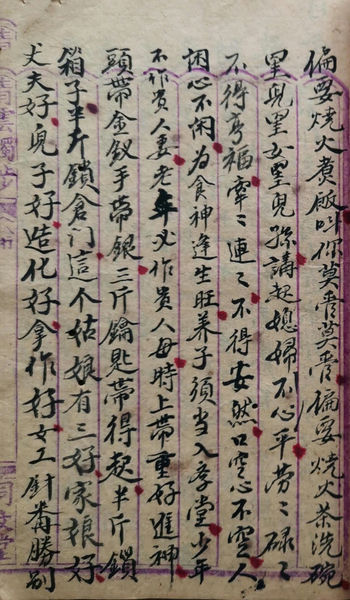 偏要燒火煮飯叫你莫管莫管偏要燒火茶洗碗
里兒里女里兒孫講起媳婦不心平勞〻碌〻
不得享福牽〻連〻不得安然口空心不空人
閑心不闲为食神逢生旺养子須当入孝堂少年
不作貴人妻老年必作貴人母時上帶重好進神
頭帶金釵手帶銀三斤鑰匙帶得起半斤鎖
箱子半斤鎖倉门這个姑娘有三好家娘好
丈夫好児子好造化好拿作好女工針黹勝别